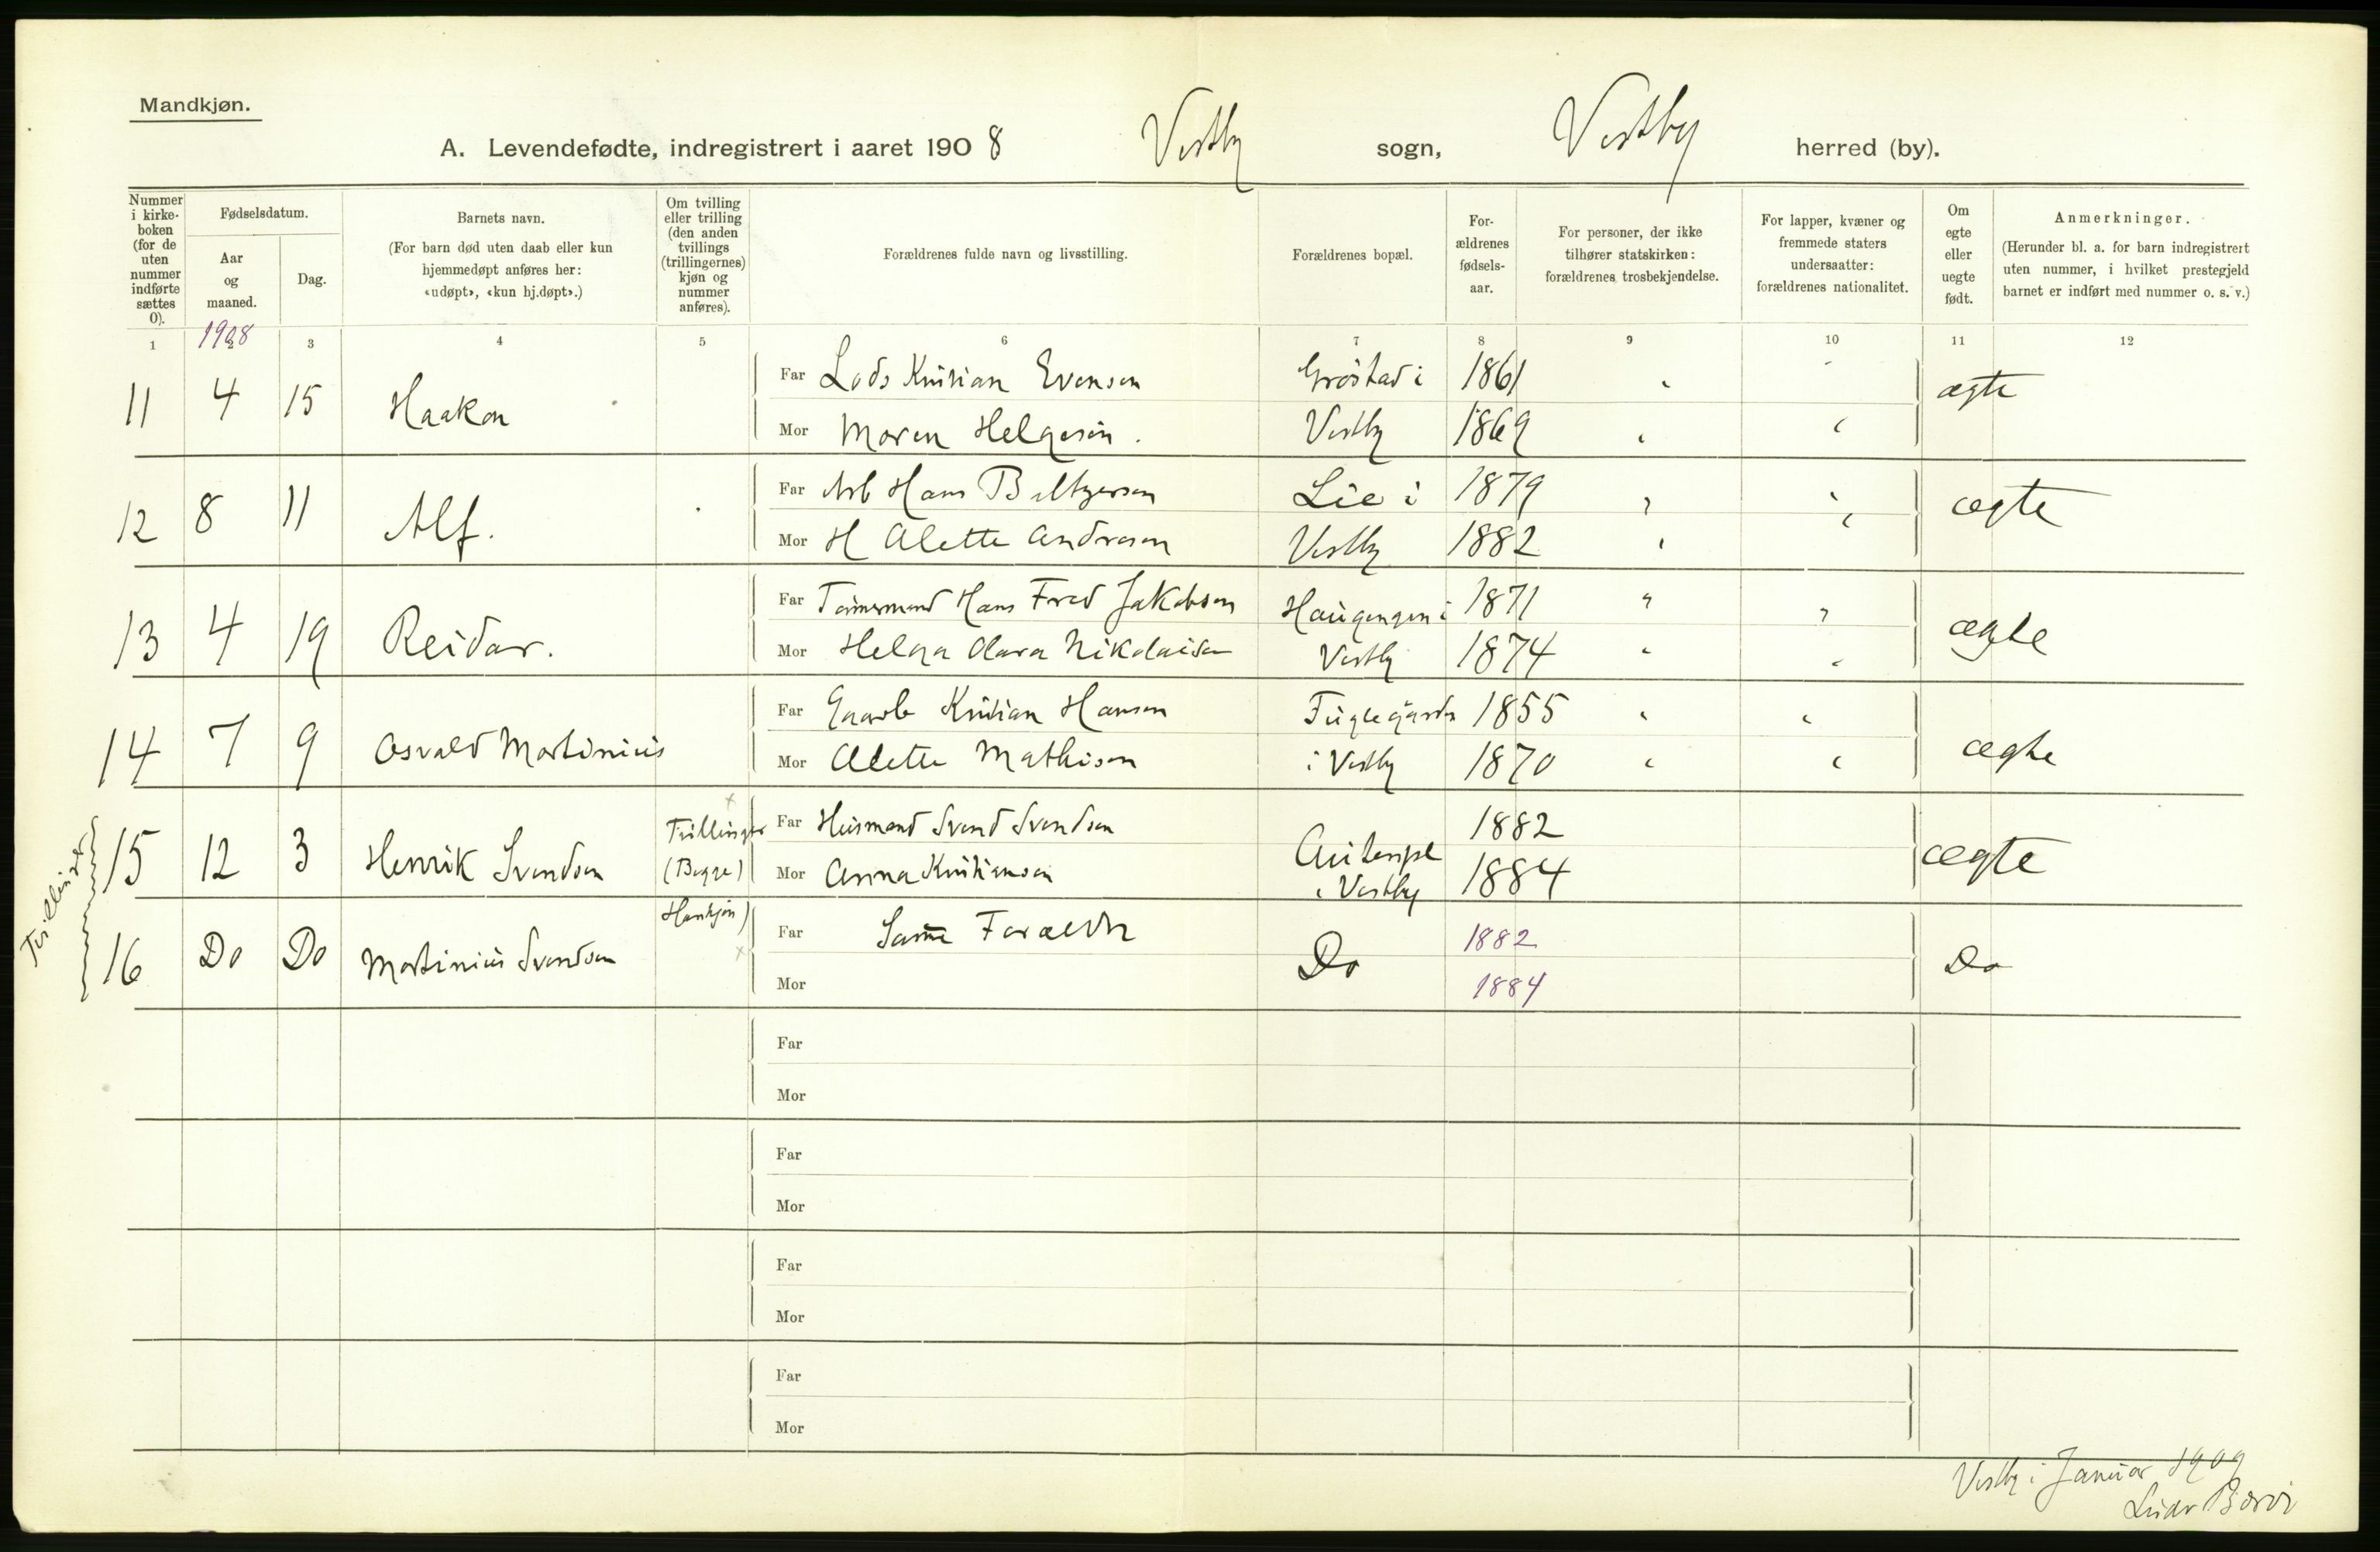 Mandkjøn.
A. Levendefødte, indregistrert i aaret 1908 Vestby sogn, Vestby herred (by).
Nummer i kirke-boken (for de uten nummer indførte sættes 0).
Fødselsdatum.
Aar og maaned.
Dag.
Barnets navn.
(For barn død uten daab eller kun hjemmedøpt anføres her: «udøpt», «kun hj.døpt».)
Om tvilling eller trilling (den anden tvillings (trillingernes) kjøn og nummer anføres).
Forældrenes fulde navn og livsstilling.
Forældrenes bopæl.
For-ældrenes fødsels-aar.
For personer, der ikke tilhører statskirken: forældrenes trosbekjendelse.
For lapper, kvæner og fremmede staters undersaatter: forældrenes nationalitet.
Om egte eller uegte født.
Anmerkninger.
(Herunder bl. a. for barn indregistrert uten nummer, i hvilket prestegjeld barnet er indført med nummer o. s. v.)
1 2 3 4 5 6 7 8 9 10 11 12
1908
11 4 15 Haakon Far Lods Kristian Evensen Grøstad i 1861 ægte
Mor Maren Helgesen. Vestby 1869
12 8 11 Alf. Far Arb Hans Baltzersen Lie i 1879 ægte
Mor H Alette Andresen Vestby 1882
13 4 19 Reidar. Far Tømmermand Hans Fred Jakobsen Haugengen i 1871 ægte
Mor Helga Olava Nikolaisen Vestby 1874
14 7 9 Osvald Martinius Far Gaarbr Kristian Hansen Fuglegjarde 1855 ægte
Mor Alette Mathisen i Vestby 1870
Tvillinger
15 12 3 Henrik Svendsen Tvillinger (Begge Far Husmand Svend Svendsen 1882 ægte
Mor Anna Kristiansen i Vestby 1884
16 Do Do Martinius Svendsen Hankjøn) Far Samme Forældre Do 1882 Do
Mor 1884
Far
Mor
Far
Mor
Far
Mor
Far
Mor
Vestby i Januar 1909